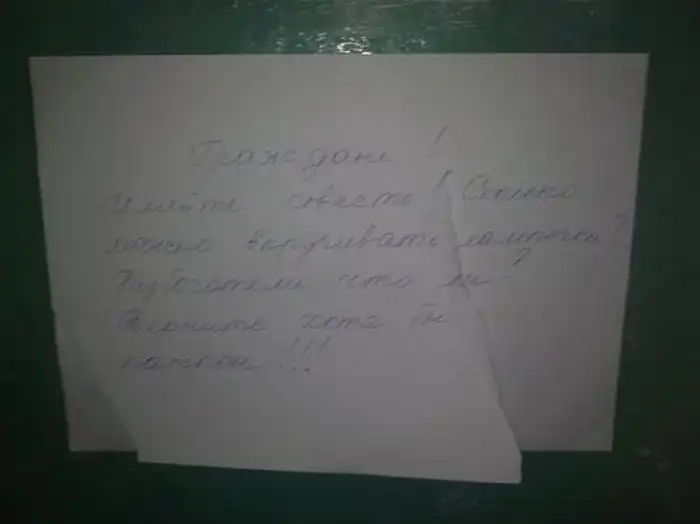 Граждане !
Имейте совесть ! Сколько
можно вкручивать лампочки ?
Разбогатели что ли ?
Верните хотя бы
патрон !!!